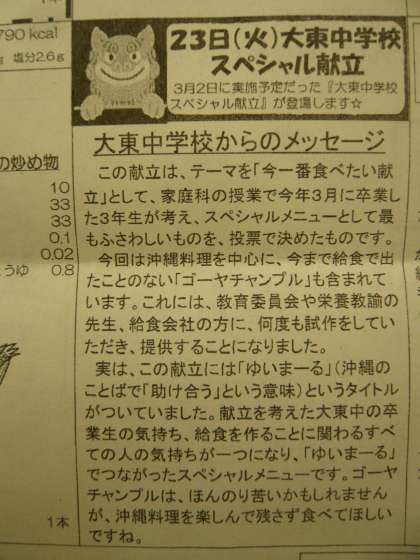 790 kcal
塩分2.6g
の炒め物
10
33
33
0.1
0.02
ょうゆ 0.8
1本
23日(火)大東中学校
スペシャル献立
3月2日に実施予定だった『大東中学校
スペシャル献立』が登場します☆
大東中学校からのメッセージ
この献立は、テーマを「今一番食べたい献
立」として、家庭科の授業で今年3月に卒業し
た3年生が考え、スペシャルメニューとして最
もふさわしいものを、投票で決めたものです。
今回は沖縄料理を中心に、今まで給食で出
たことのない「ゴーヤチャンプル」も含まれて
います。これには、教育委員会や栄養教諭の
先生、給食会社の方に、何度も試作をしてい
ただき、提供することになりました。
実は、この献立には「ゆいまーる」(沖縄の
ことばで「助け合う」という意味)というタイトル
がついていました。献立を考えた大東中の卒
業生の気持ち、給食を作ることに関わるすべ
ての人の気持ちが一つになり、「ゆいまーる」
でつながったスペシャルメニューです。ゴーヤ
チャンプルは、ほんのり苦いかもしれません
が、沖縄料理を楽しんで残さず食べてほしい
ですね。